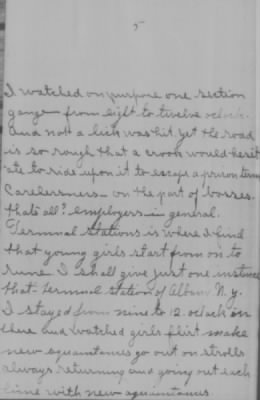 5
I watched on purpose one section
gange from eight to twelve oclock.
And not a lick was hit. yet the road
is so rough that a crook would hesit
ate to ride upon it to escape a prison term
Carelessness on the part of bosses.
thats all? employers in general.
Terminal stations is where I find
that young girls start from on to
ruine. I shall give just one instance
that terminal station of Albany N. y.
I stayed from nine to 12 oclock on
there and watched girls flirt make
new aquantances go out on strolls
always returning and going out each
time with new aquantances